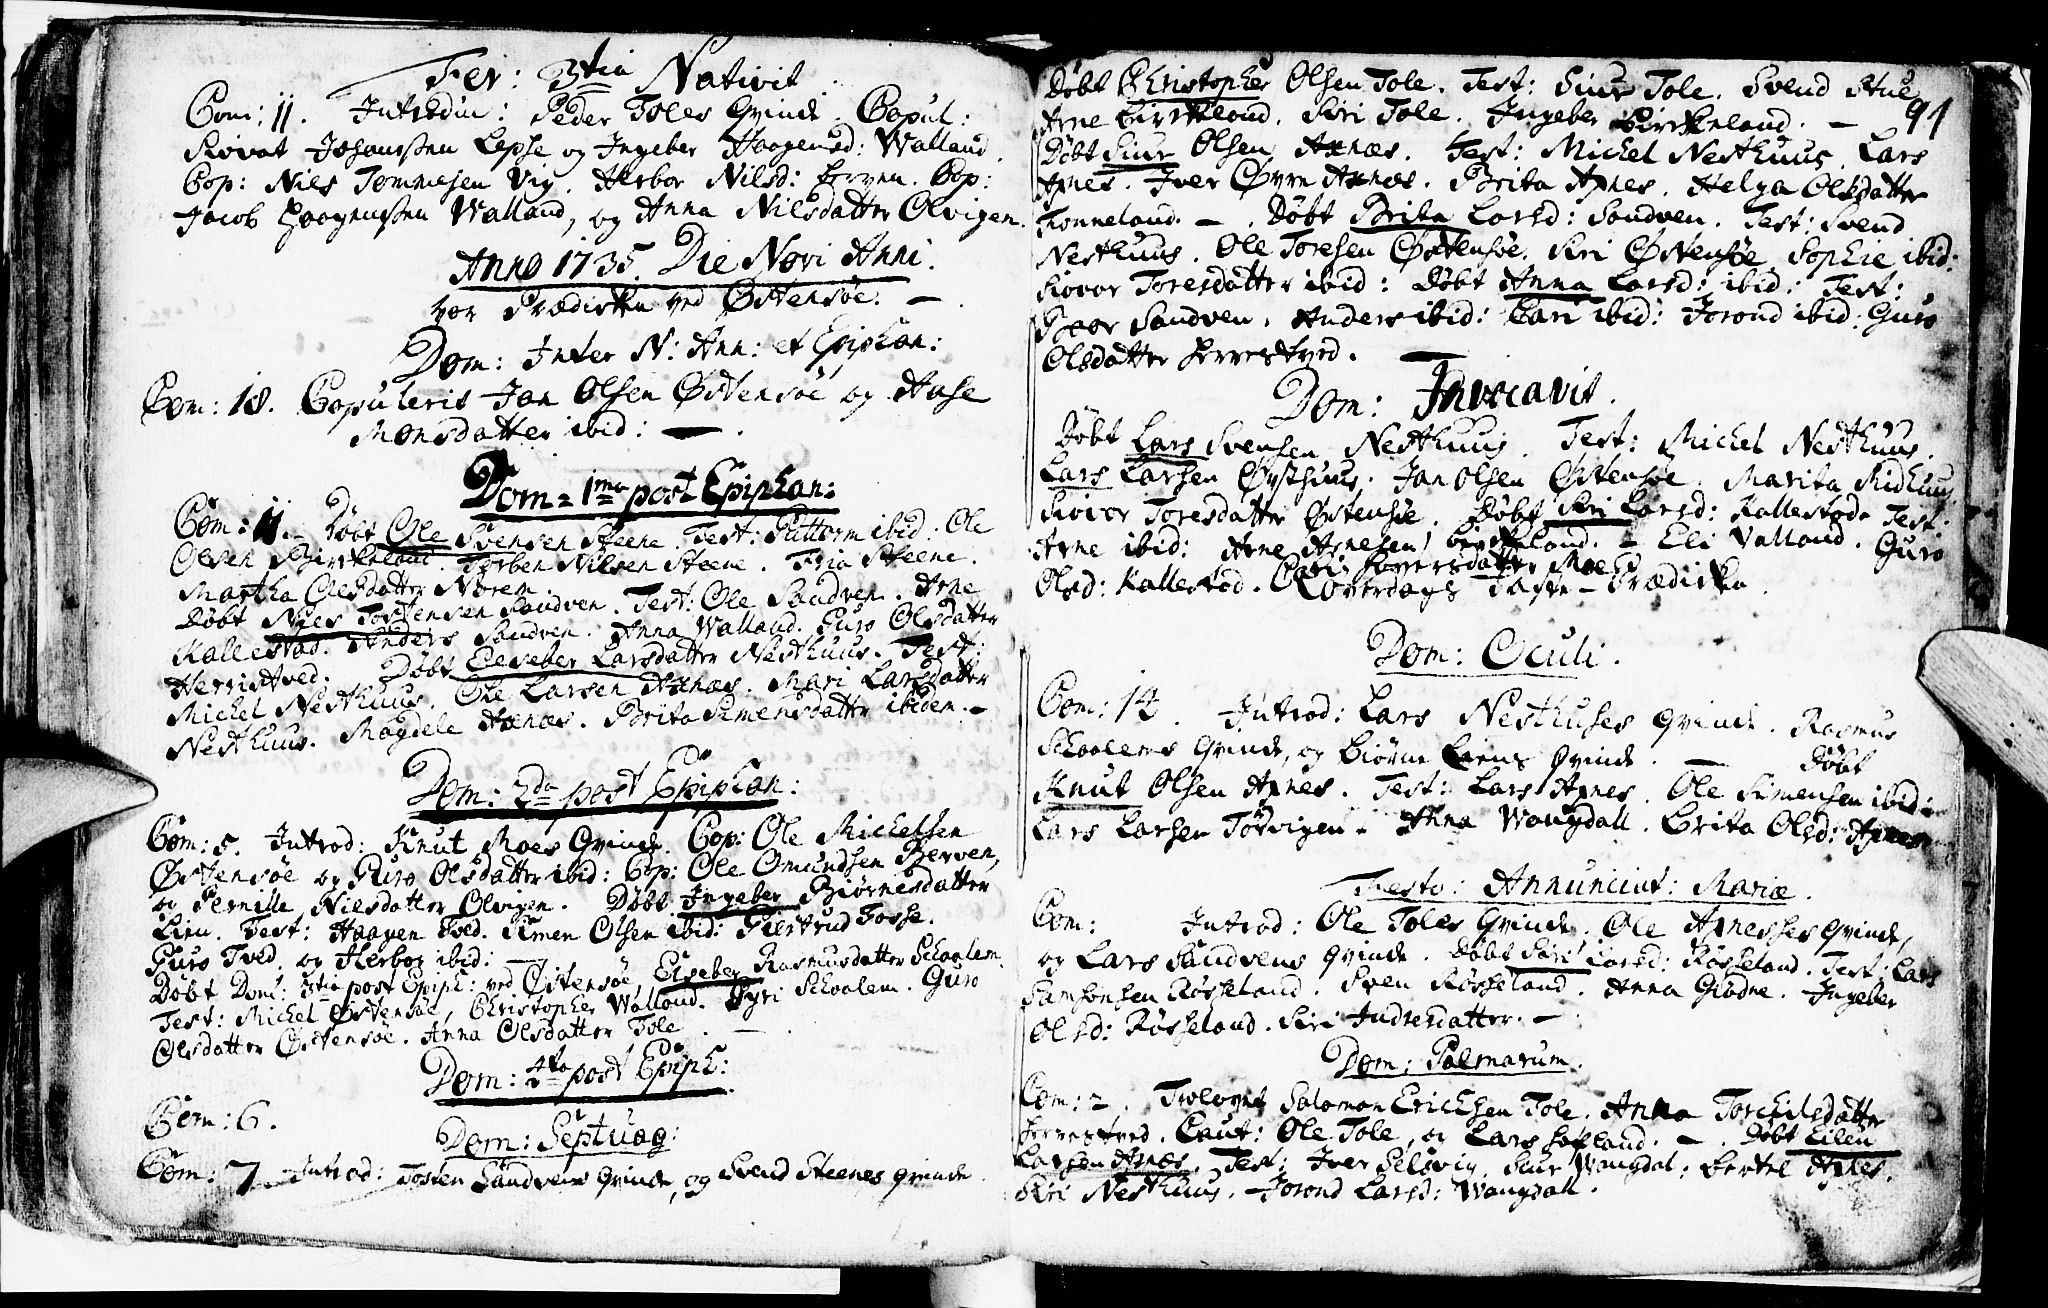 Fer: 3tia Nativit
Com: 11. Introduc: Peder Toles Qvinde. Copul:
Siovat Johanssen Lepse og Ingeber Haagensd: Walland.
Cop: Niels Tommesen Vig. Herbor Nilsd: Berven. Cop:
Jacob Haagenssen Walland, og Anna Nilsdatter Olvigen.
Anno 1735. Die Novi Anni.
var Prædicken ved Østensöe. —
Dom: Inter N: Ann: et Epiphan:
Com: 18. Copuleris Jan Olsen Østensöe og Aase
Monsdatter ibid: —.
Dom = 1ma post Epiphan:
Com: 11. — Döbt Ole Svensen Steene. Test: Guttorm ibid. Ole
Olsen Birckeland. Torben Nilsen Steene. Steene.
Martha Olsdatter Norem.
Döbt Niels Torstensen Sandven. Test: Ole Sandven. Arne
Kallestad. Anders Sandven. Anna Walland. Guro Olsdatter
Herristved. Döbt Elseber Larsdatter Nesthuus. Test:
Michel Nesthuus. Ole Larsen Axnæs. Mari Larsdatter
Nesthuus. Magdele Axnæs. Brita Simensdatter ibidem. —
Dom: 2da post Epiphan:
Com: 5. Introd: Knut Moes Qvinde. Cop: Ole Michelsen
Östensöe og Guro Olsdatter ibid: Cop: Ole Omundsen Berven,
og Pernille Nielsdatter Olvigen. Döbt Ingeber Biörnesdatter
Lien. Test: Haagen Tved. Simen Olsen ibid: Giertrud Fosse.
Guro Tved, og Herbor ibid: —
Döbt Dom: 3tia post Epiph: ved Östensöe, Elseber Rasmusdatter Schaalem.
Test: Michel Östensöe, Christopher Walland. Syri Schaalem. Guro
Olsdatter Östensöe. Anna Olsdatter Tole. —
Dom: 4ta post Epiph:
Com: 6.
Dom: Septuag:
Com: 7. Introd: Tosten Sandvens Qvinde, og Svend Steenes qvinde.
91
Döbt Christopher Olsen Tole. Test: Siur Tole. Svend Stue
Arne Birckeland. Siri Tole. Ingeber Birckeland. —
Döbt Siur Olsen Axnæs. Test: Michel Nesthuus. Lars
Axnes. Iver Øvre Axnæs. Brita Axnes. Helga Olsdatter
Tonneland. —. Döbt Brita Larsd: Sandven. Test: Svend
Nesthuus. Ole Toresen Östensöe. Siri Östensöe. Sophie ibid:
Siovor Toresdatter ibid: Döbt Anna Larsd: ibid: Test:
Sandven. Anders ibid: Cari ibid: Jorond ibid: Guro
Olsdatter Herrestved. —
Dom: Invocavit.
Döbt Lars Svensen Nesthuus. Test: Michel Nesthuus.
Lars Larsen Øysthuus. Jan Olsen Östensöe. Marita Midhuus
Siovor Toresdatter Østensöe. Döbt Siri Larsd: Kallestad. Test:
Arne ibid: Arne Arnesen Birckeland. — Eli Valland. Guro
Olsd: Kallestad. Cari Sioversdatter Moe.
Onsdags Faste-Prædicken.
Dom: Oculi.
Com: 14. Introd: Lars Nesthuses Qvinde. Rasmus
Schaalems Qvinde, og Biörne Liens Qvinde. — Döbt
Knut Olsen Axnes. Test: Lars Axnes. Ole Simensen ibid:
Lars Larsen Törvigen. Anna Wangdall. Brita Olsd: Axnes
Festo: Annunciat: Mariæ.
Com: Introd: Ole Toles Qvinde. Ole Axneses Qvinde,
og Lars Sandvens Qvinde. Döbt Siri Larsd: Røsseland. Test: Lars
Samsonsen Røsseland. Sven Røsseland. Anna Giödne. Ingeber
Olsd: Røsseland. Siri Indresdatter. —.
Dom: Palmarum.
Com: 2. Trolovet Salomon Ericksen Tole. Anna Torchilsdatter
Herrestved. Caut: Ole Tole, og Lars. —. Döbt Eilen
Larsen Axnæs. Test: Iver Selsvig. Siur Wangdal: Bertel Axnes.
Siri Nesthuus. Jorond Larsd: Wangdall.